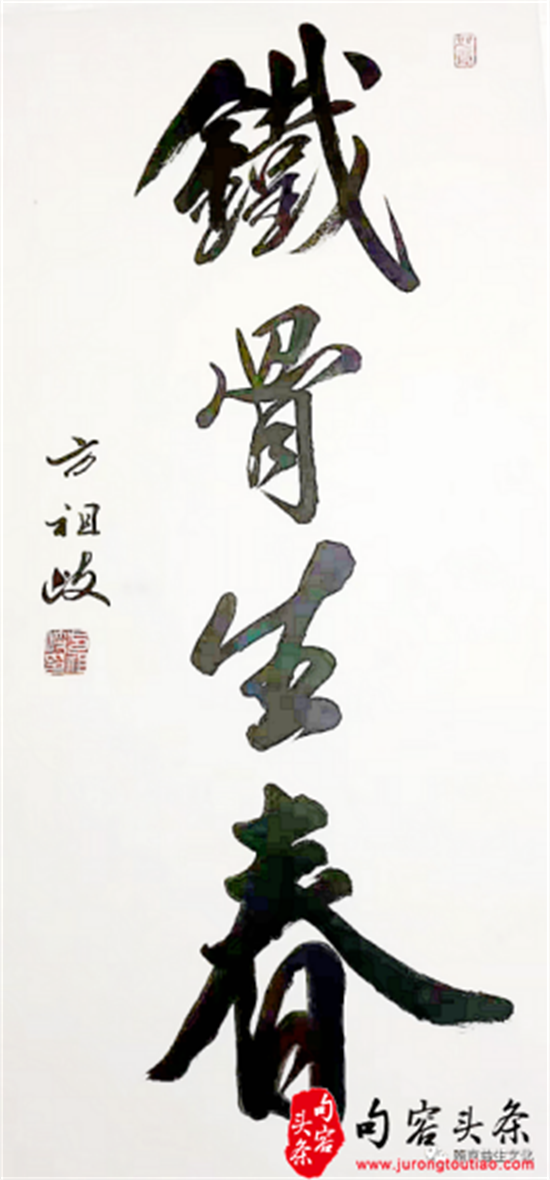 鐵骨生春
方祖岐
句容头条
句容头条
www.jurongtoutiao.com